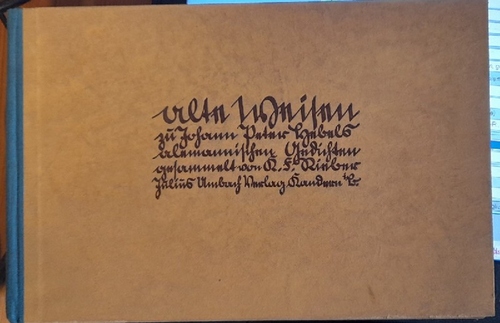 Alte Weisen
zu Johann Peter Hebels
alemannischen Gedichten
gesammelt von K. F. Rieber
Julius Umbach Verlag Kandern i/B.